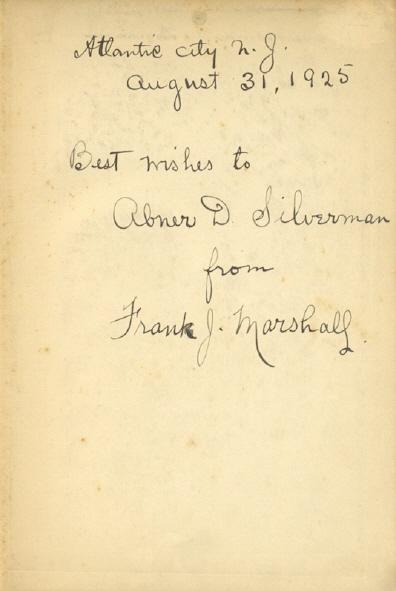 Atlantic city N. J.
August 31, 1925
Best wishes to
Abner D. Silverman
from
Frank J. Marshall.